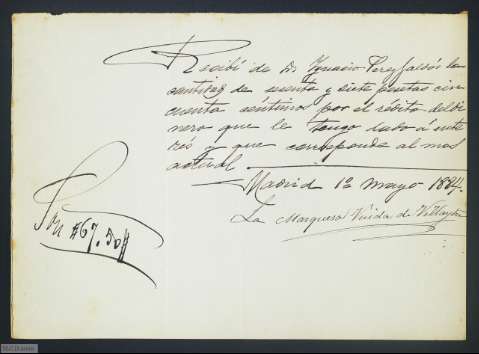 Recibí de Dn Ygnacio Perez Galdós la
cantidad de sesenta y siete pesetas cin
cuenta céntimos por el rédito del di
nero que le tengo dado á inte
rés y que corresponde al mes
actual
Madrid 1º mayo 1884.
La Marquesa Viuda de
Son #67.50#